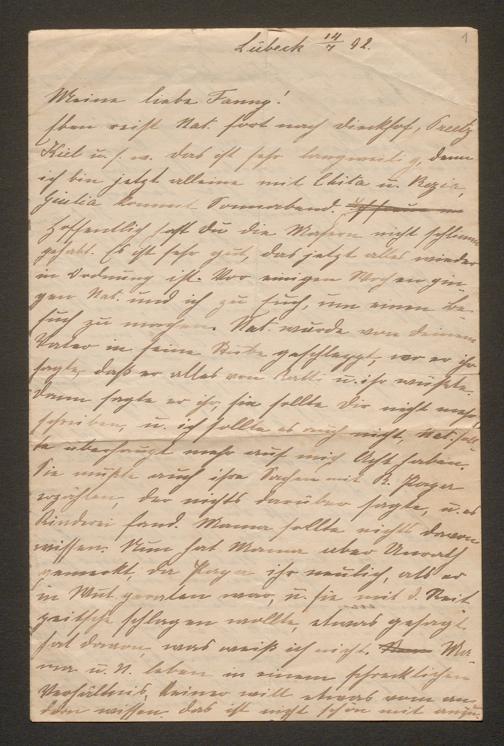 1
Lübeck 14/7 92.
Meine liebe Fanny!
Eben reist Nat. fort nach Dieckhof, Preetz
Kiel u. s. w. das ist sehr langweilig, denn
ich bin jetzt alleine mit Chita u. Rezia,
Giulia kommt Sonnabend.
Hoffentlich hast Du die Masern nicht schlimm
gehabt. Es ist sehr gut, das jetzt alles wieder
in Ordnung ist. Vor einigen Wochen gin-
gen Nat. und ich zu Euch, um einen Be-
such zu machen. Nat. wurde von Deinem
Vater in seine Stube geschleppt, wo er ihr
sagte, daß er alles von u. ihr wüßte.
Dann sagte er ihr, sie sollte Dir nicht mehr
schreiben, u. ich sollte es auch nicht, Nat. soll-
te überhaupt mehr auf mich Acht haben.
Sie mußte auch ihre Sachen mit R. Papa
erzählen, der nichts darüber sagte, u. es
Kinderei fand. Mama sollte nichts davon
wissen. Nun hat Mama aber Unrath
gemerkt, da Papa ihr neulich, als er
in Wut geraten war, u. sie mit d. Reit-
peitsche schlagen wollte, etwas gesagt
hat davon, was weiß ich nicht. Ma-
ma u. N. leben in einem schrecklichen
Verhältnis, keiner will etwas vom an-
dern wissen. das ist nicht schön mit anzu-